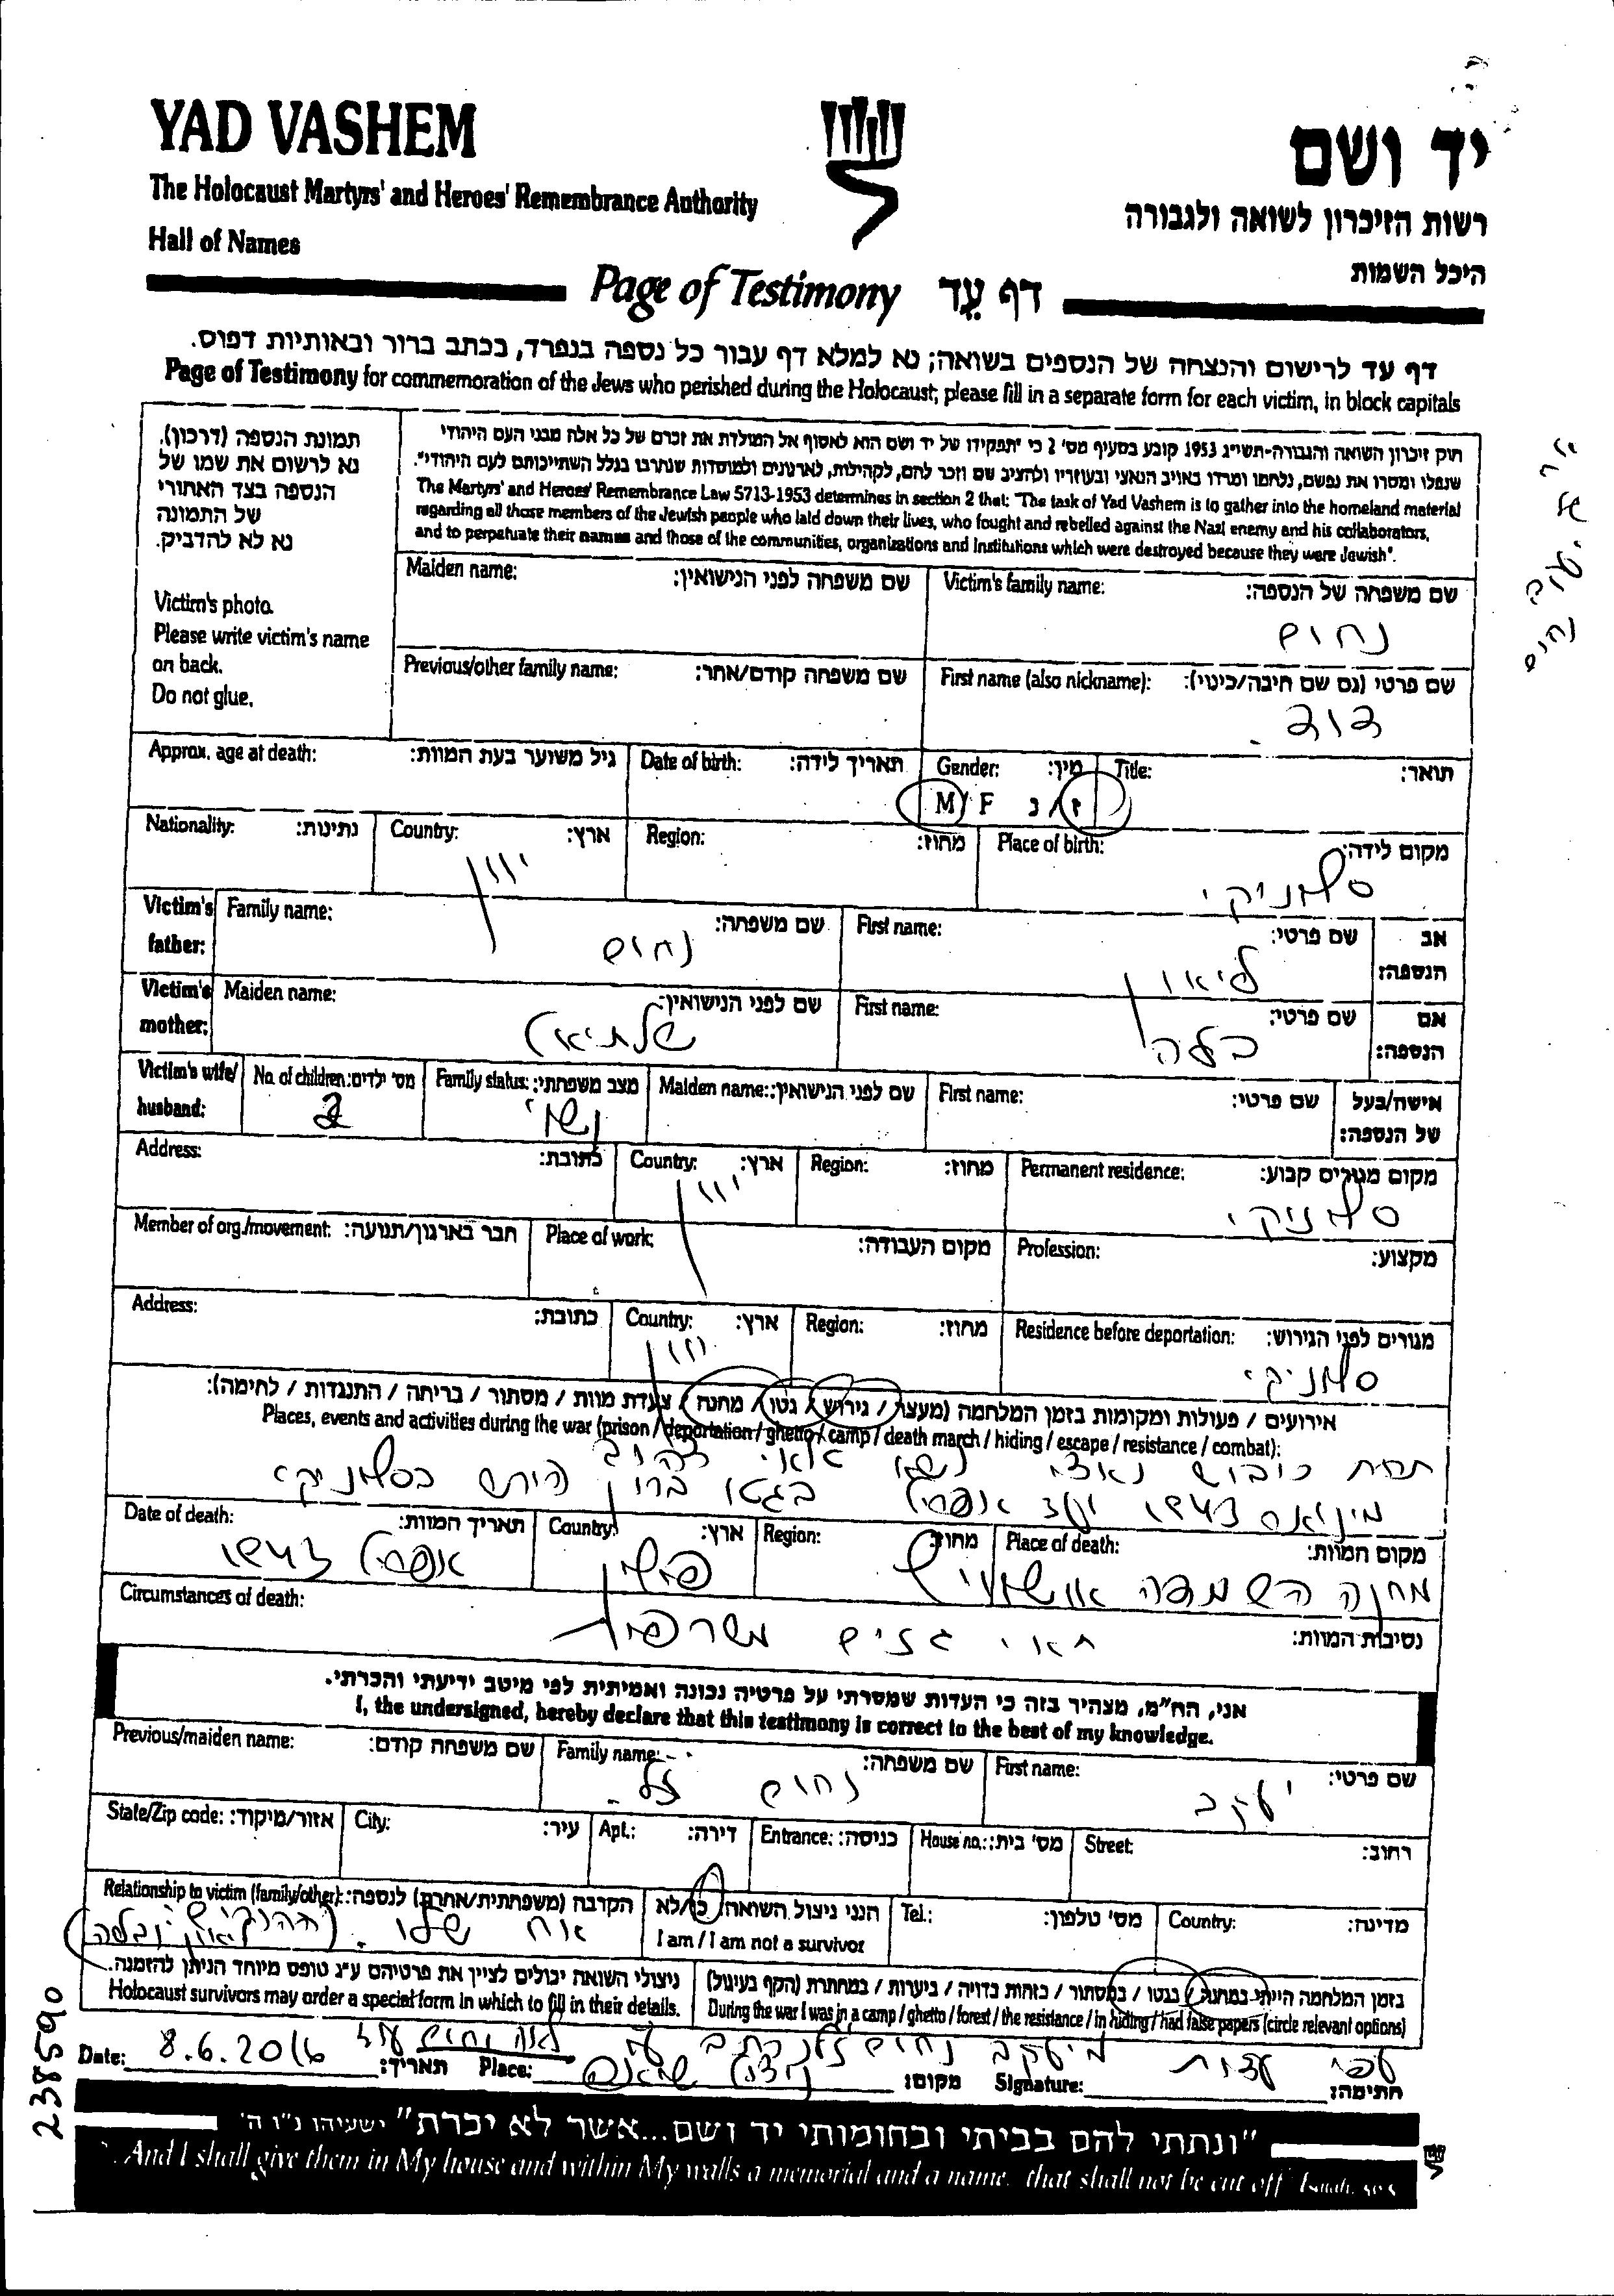 YAD VASHEM
יד ושם
The Holocaust Martyrs' and Heroes' Remembrance Authority
רשות הזיכרון לשואה ולגבורה
Hall of Names
היכל השמות
Page of Testimony דף עֵד
דף עד לרישום והנצחה של הנספים בשואה; נא למלא דף עבור כל נספה בנפרד, בכתב ברור ובאותיות דפוס.
Page of Testimony for commemoration of the Jews who perished during the Holocaust; please fill in a separate form for each victim, in block capitals
תמונת הנספה (דרכון).
נא לרשום את שמו של
הנספה בצד האחורי
של התמונה
נא לא להדביק.
Victim's photo.
Please write victim's name
on back.
Do not glue.
חוק זיכרון השואה והגבורה-תשי"ג 1953 קובע בסעיף מס' 2 כי "תפקידו של יד ושם הוא לאסוף אל המולדת את זכרם של כל אלה מבני העם היהודי
שנפלו ומסרו את נפשם, נלחמו ומרדו באויב הנאצי ובעוזריו ולהציב שם וזכר להם, לקהילות, לארגונים ולמוסדות שנחרבו בגלל השתייכותם לעם היהודי".
The Martyrs' and Heroes' Remembrance Law 5713-1953 determines in section 2 that: "The task of Yad Vashem is to gather into the homeland material
regarding all those members of the Jewish people who laid down their lives, who fought and rebelled against the Nazi enemy and his collaborators,
and to perpetuate their names and those of the communities, organizations and institutions which were destroyed because they were Jewish".
Maiden name: שם משפחה לפני הנישואין:
Victim's family name: שם משפחה של הנספה:
נחום
Previous/other family name: שם משפחה קודם/אחר:
First name (also nickname): שם פרטי (גם שם חיבה/כינוי):
דוד
Approx. age at death: גיל משוער בעת המוות:
Date of birth: תאריך לידה:
Gender: מין:
M / F ז / נ
Title: תואר:
Nationality: נתינות:
Country: ארץ:
יוון
Region: מחוז:
Place of birth: מקום לידה:
סלוניקי
Victim's father: Family name: שם משפחה:
נחום
First name: שם פרטי: אב הנספה:
ליאון
Victim's mother: Maiden name: שם לפני הנישואין:
שלתיאל
First name: שם פרטי: אם הנספה:
בלה
Victim's wife/husband: No. of children: מס' ילדים:
2
Family status: מצב משפחתי:
נשוי
Maiden name: שם לפני הנישואין:
First name: שם פרטי: אישה/בעל של הנספה:
Address: כתובת:
Country: ארץ:
יוון
Region: מחוז:
Permanent residence: מקום מגורים קבוע:
סלוניקי
Member of org./movement: חבר בארגון/תנועה:
Place of work: מקום העבודה:
Profession: מקצוע:
Address: כתובת:
Country: ארץ:
יוון
Region: מחוז:
Residence before deportation: מגורים לפני הגירוש:
סלוניקי
אירועים / פעולות ומקומות בזמן המלחמה (מעצר / גירוש / גטו / מחנה / צעדת מוות / מסתור / בריחה / התנגדות / לחימה):
Places, events and activities during the war (prison / deportation / ghetto / camp / death march / hiding / escape / resistance / combat):
תחת כיבוש נאצי נשא טלאי צהוב
1943 ועד אפריל בגטו ברון הירש בסלוניקי
Date of death: תאריך המוות:
אפריל 1943
Country: ארץ:
פולין
Region: מחוז:
Place of death: מקום המוות:
מחנה השמדה אושוויץ
Circumstances of death: נסיבות המוות:
תאי גזים משרפות
אני, הח"מ, מצהיר בזה כי העדות שמסרתי על פרטיה נכונה ואמיתית לפי מיטב ידיעתי והכרתי.
I, the undersigned, hereby declare that this testimony is correct to the best of my knowledge.
Previous/maiden name: שם משפחה קודם:
Family name: שם משפחה:
נחום ז"ל
First name: שם פרטי:
יעקב
State/Zip code: אזור/מיקוד:
City: עיר:
Apt.: דירה:
Entrance: כניסה:
House no.: מס' בית:
Street: רחוב:
Relationship to victim (family/other): הקרבה (משפחתית/אחרת) לנספה:
אח שלו. (ההורים ליאון ובלה)
הנני ניצול השואה: כן/לא
I am / I am not a survivor
Tel.: מס' טלפון:
Country: מדינה:
ניצולי השואה יכולים לציין את פרטיהם ע"ג טופס מיוחד הניתן להזמנה.
Holocaust survivors may order a special form in which to fill in their details.
בזמן המלחמה הייתי במחנה / בגטו / במסתור / בזהות בדויה / ביערות / במחתרת (הקף בעיגול)
During the war I was in a camp / ghetto / forest / the resistance / in hiding / had false papers (circle relevant options)
לפי עדות מיעקב נחום ז"ל נכתב ע"י
Date: 8.6.2016 תאריך: Place: מקום: Signature: חתימה:
238590
"ונתתי להם בביתי ובחומותי יד ושם...אשר לא יכרת" ישעיהו נ"ו ה'
"...And I shall give them in My house and within My walls a memorial and a name... that shall not be cut off" Isaiah, 56:5